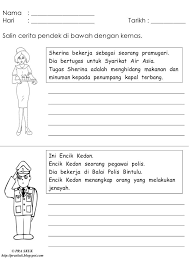 Nama :
Hari :
Tarikh :
Salin cerita pendek di bawah dengan kemas.
Sherina bekerja sebagai seorang pramugari.
Dia bertugas untuk Syarikat Air Asia.
Tugas Sherina adalah menghidang makanan dan
minuman kepada penumpang kapal terbang.
Ini Encik Kedon.
Encik Kedon seorang pegawai polis.
Dia bekerja di Balai Polis Bintulu.
Encik Kedon menangkap orang yang melakukan
jenayah.